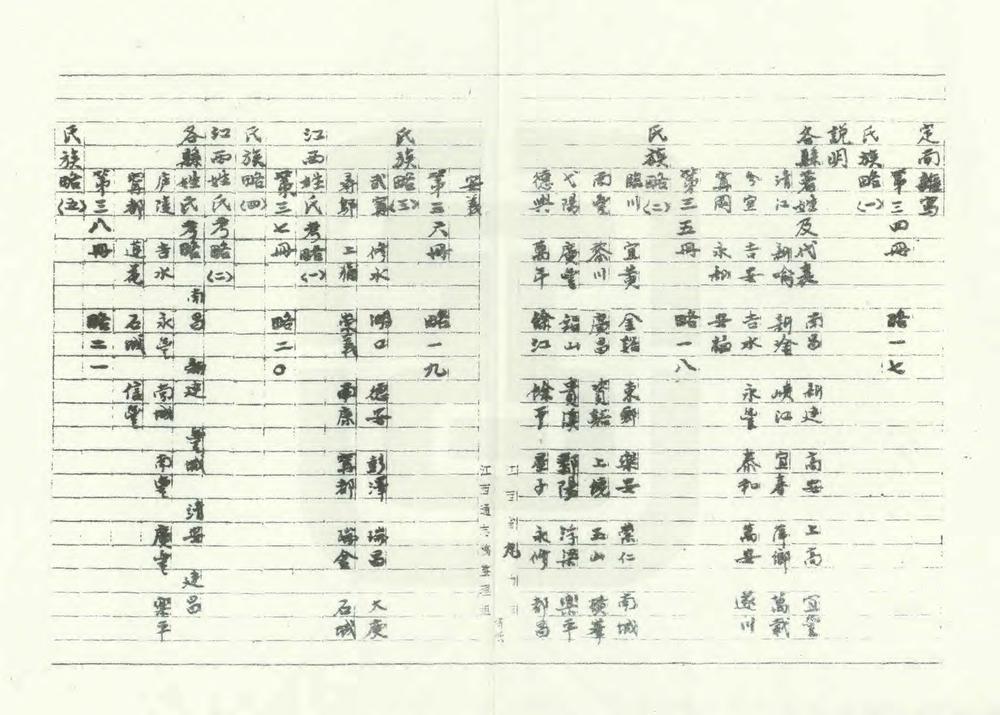 定南 尋鄔
第三四冊 略一七
民族略(一)
說明
各縣著姓及代表 南昌 新建 高安 上高 宜豐
清江 新喻 新淦 峽江 宜春 萍鄉 萬載
分宜 吉安 吉水 永豐 泰和 萬安 遂川
寧岡 永新 安福
第三五冊 略一八
民族略(二)
臨川 宜黃 金谿 東鄉 樂安 崇仁 南城
南豐 黎川 廣昌 資谿 上饒 玉山 橫峯
弋陽 廣豐 鉛山 貴溪 鄱陽 浮梁 樂平
德興 萬年 餘江 餘干 星子 永修 都昌
安義
第三六冊 略一九
民族略(三)
武寧 修水 湖口 德安 彭澤 瑞昌 大庾
尋鄔 上猶 崇義 南康 寧都 瑞金 石城
江西姓氏考略(一)
第三七冊 略二〇
民族略(四)
江西姓氏考略(二)
各縣姓氏考略 南昌 新建 豐城 靖安 建昌
廬陵 吉水 永豐 南城 南豐 廣豐 樂平
寧都 蓮花 石城 信豐
第三八冊 略二一
民族略(五)
江西通志館整理組